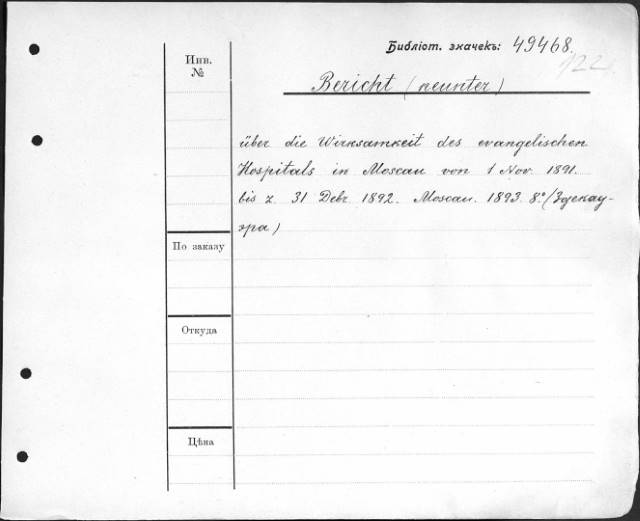 Библіот. значекъ: 49468.
122
Инв. №
Bericht (neunter)
über die Wirksamkeit des evangelischen
Hospitals in Moscau von 1 Nov. 1891.
bis z. 31 Debr. 1892. Moscau. 1893. 8.° (Здекау-
эра)
По заказу
Откуда
Цѣна